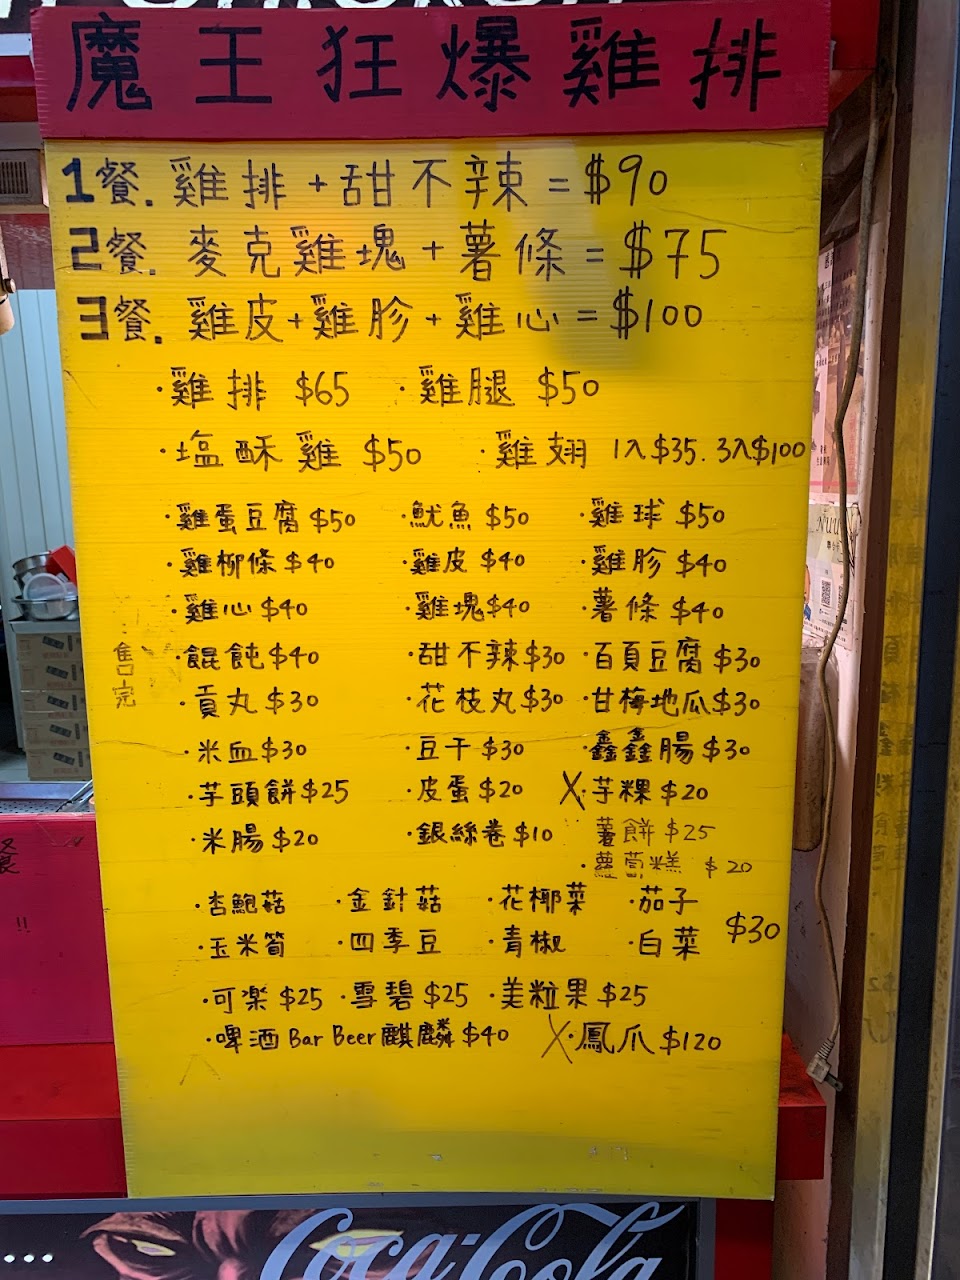 魔王狂爆雞排
1餐. 雞排+甜不辣=$90
2餐. 麥克雞塊+薯條=$75
3餐. 雞皮+雞胗+雞心=$100
·雞排 $65 ·雞腿 $50
·塩酥雞 $50 ·雞翅 1入$35. 3入$100
·雞蛋豆腐$50 ·魷魚$50 ·雞球$50
·雞柳條$40 ·雞皮$40 ·雞胗$40
·雞心$40 ·雞塊$40 ·薯條$40
售完
·餛飩$40 ·甜不辣$30 ·百頁豆腐$30
·貢丸$30 ·花枝丸$30 ·甘梅地瓜$30
·米血$30 ·豆干$30 ·鑫鑫腸$30
·芋頭餅$25 ·皮蛋$20 X·芋粿$20
·米腸$20 ·銀絲卷$10 薯餅$25
·蘿蔔糕 $20
·杏鮑菇 ·金針菇 ·花椰菜 ·茄子
·玉米筍 ·四季豆 ·青椒 ·白菜 $30
·可楽$25 ·雪碧$25 ·美粒果$25
·啤酒Bar Beer麒麟$40 X·鳳爪$120
Coca-Cola